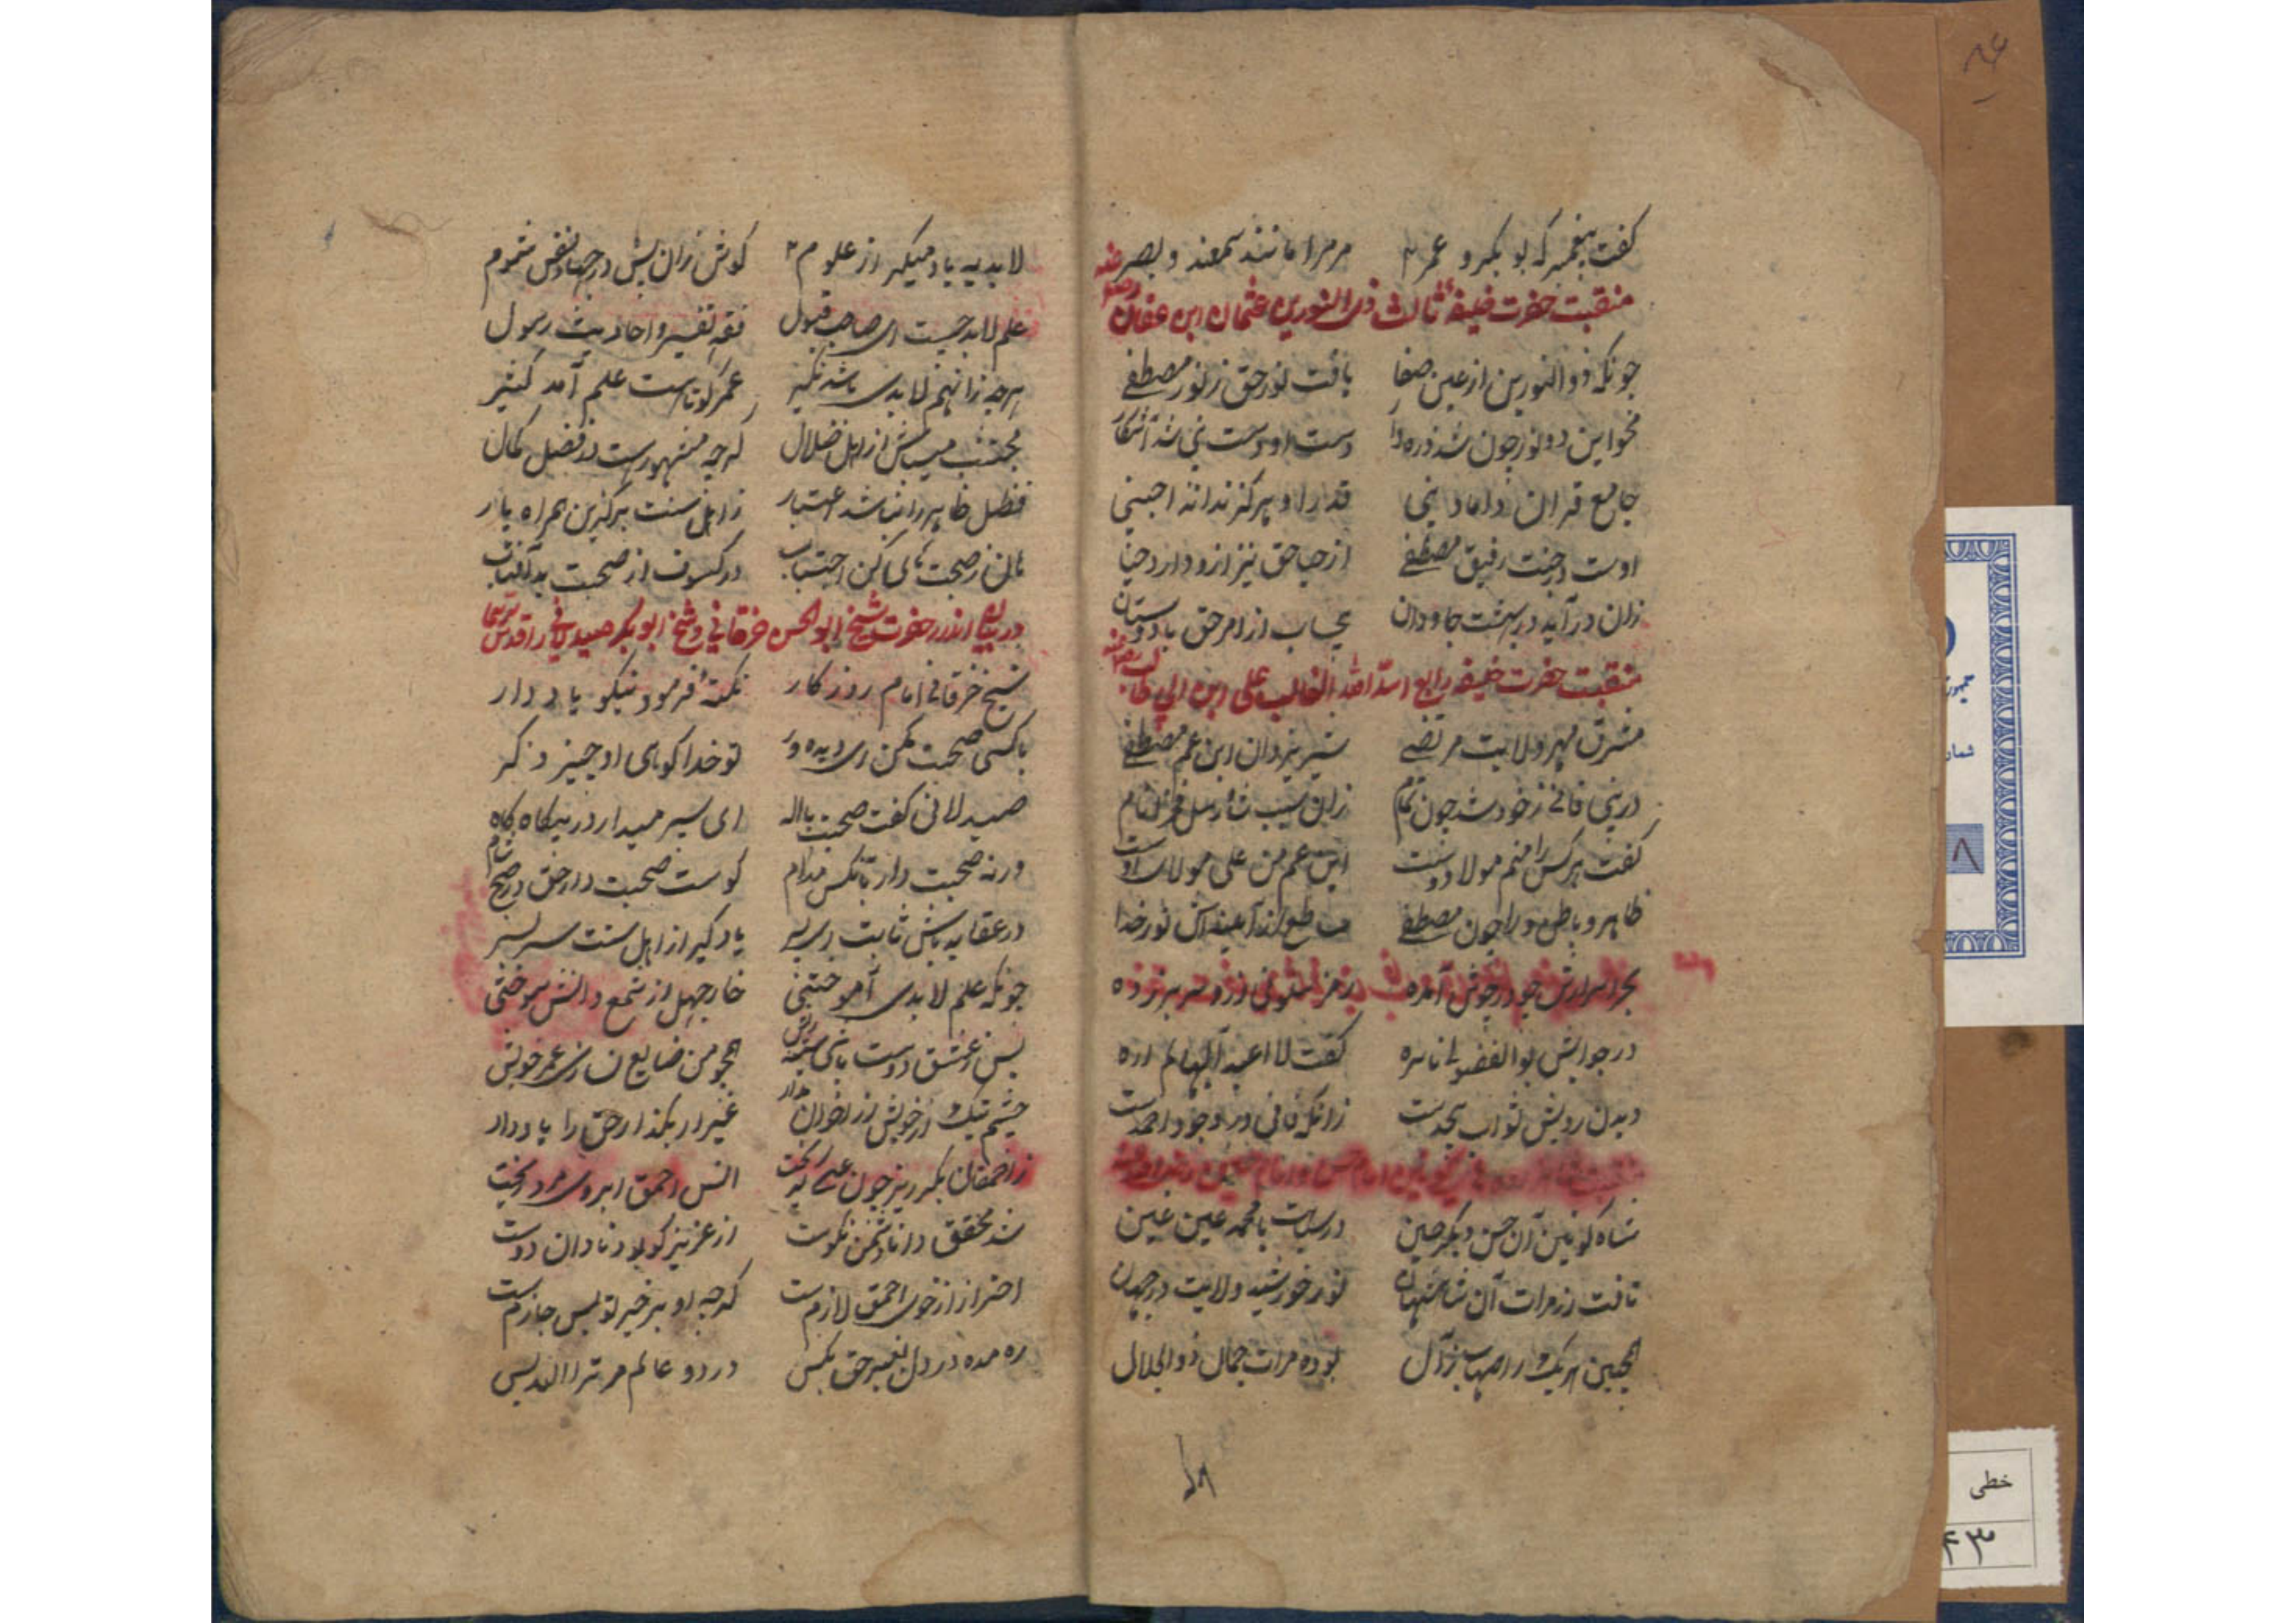 گفت پیغمبر که بوبکر و عمر مر مرا مانند سمعند و بصر
منقبت حضرت خلیفهٔ ثالث ذی النورین عثمان ابن عفان رضی عنه
چونکه ذو النورین از عین صفا یافت نور حق ز نور مصطفے
محو این دو نور چون شد ذره وار دست او دست نبی شد آشکار
جامع قران و داماد نبی قدر او هرگز نداند اجنبی
اوست در جنت رفیق مصطفے از حیا حق نیز ازو دارد حیا
زان درآید در بهشت جاودان بی حساب از امر حق با دوستان
منقبت حضرت خلیفه رابع اسد الله الغالب علی ابن ابی طالب
مشرق مهر ولایت مرتضے شیر یزدان ابن عم مصطفے
در نبی فانے ز خود شد چون تمام زان سبب
گفت هر کس را منم مولا و دوست ابن عم من علی مولای اوست
ظاهر و باطن ورا چون مصطفے نور خدا
بحر اسرارش چو در جوش آمده رمز سلونی ازو سر بر زده
در جوابش بوالفضولی ناسره گفت لا اعبد الها لم اره
دیدن رویش ثواب بیحدست زانکه فانی در وجود احمدست
شاه کونین آن حسن دیگر حسین در سیادت با محمد عین عین
تافت از مرات آن شاهنشهان نور خورشید ولایت در جهان
همچنین هر یک ز اصحاب و ز آل بوده مرات جمال ذوالجلال
لابدیه یاد میگیر از علوم کوش زان پس در جهاد نفس شوم
علم لابد چیست ای صاحب قبول فقه تفسیر و احادیث رسول
هرچه زانهم لابدی باشد بگیر عمر کوتاهست علم آمد کثیر
مجتنب میباش از اهل ضلال گرچه مشهورست در فضل کمال
فضل ظاهر را نباشد اعتبار ز اهل سنت برگزین همراه یار
هان ز صحبت های بد کن اجتناب در کسوف از صحبت بد آفتاب
در بیان اندرز حضرت شیخ ابوالحسن خرقانی و شیخ ابوبکر صیدلانی را قدس سرهما
شیخ خرقانی امام روزگار نکتهٔ فرمود نیکو یاد دار
با کسی صحبت مکن ای دیده ور تو خدا گوی او چیز دگر
صیدلانی گفت صحبت با اله ای پسر میدار در بیگاه و گاه
ورنه صحبت دار با آنکس مدام کوست صحبت دار حق در صبح و شام
در عقاید باش ثابت ای پسر یاد گیر از اهل سنت سر بسر
چونکه علم لابدی آموختی خار جهل از شمع دانش سوختی
پس ز عشق دوست باشی سینه ریش همچو من ضایع نسازی عمر خویش
چشم نیک از خویش و از اخوان مدار غیر او بگذار حق را یاد دار
ز احمقان بگریز چون عیسے گریخت انس احمق آبروی مرد ریخت
شد محقق دانا دشمن نکوست از عزیز کو بود نادان دوست
احتراز از خوی احمق لازمست گرچه او بر خیر تو بس جازمست
ره مده در دل بغیر حق بکس در دو عالم مر ترا الله بس
خطی